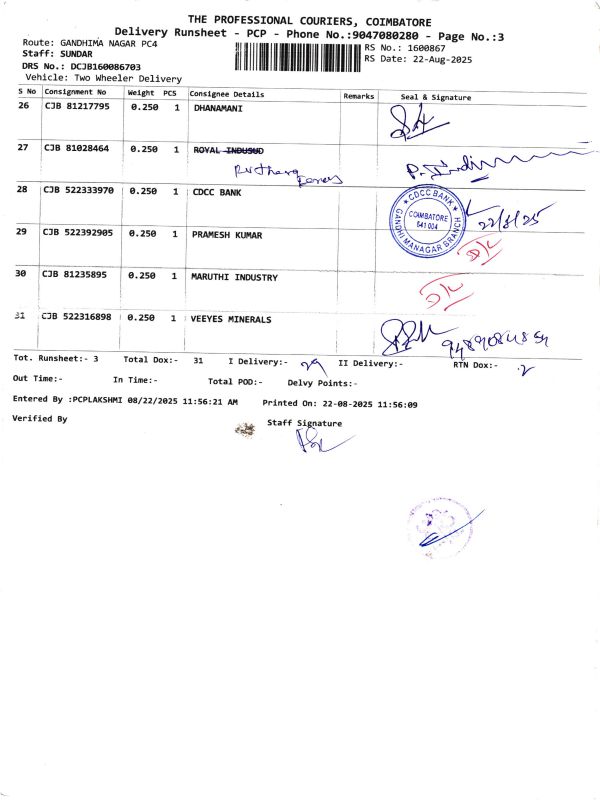 THE PROFESSIONAL COURIERS, COIMBATORE
Delivery Runsheet - PCP - Phone No.:9047080280 - Page No.:3
Route: GANDHIMA NAGAR PC4
RS No.: 1600867
Staff: SUNDAR
RS Date: 22-Aug-2025
DRS No.: DCJB160086703
Vehicle: Two Wheeler Delivery
S No Consignment No Weight PCS Consignee Details Remarks Seal & Signature
26 CJB 81217795 0.250 1 DHANAMANI
27 CJB 81028464 0.250 1 ROYAL INDUSUD
28 CJB 522333970 0.250 1 CDCC BANK
CDCC BANK
COIMBATORE
641 004
GANDHI MANAGAR BRANCH
22/8/25
29 CJB 522392905 0.250 1 PRAMESH KUMAR
D/L
30 CJB 81235895 0.250 1 MARUTHI INDUSTRY
D/L
31 CJB 522316898 0.250 1 VEEYES MINERALS
Tot. Runsheet:- 3 Total Dox:- 31 I Delivery:- 29 II Delivery:- RTN Dox:- 2
Out Time:- In Time:- Total POD:- Delvy Points:-
Entered By :PCPLAKSHMI 08/22/2025 11:56:21 AM Printed On: 22-08-2025 11:56:09
Verified By Staff Signature